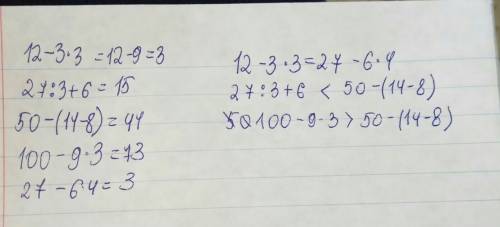 12-3·3 =12-9=3
27:3+6 = 15
50-(14-8)=44
100-9·3=73
27-6·4=3
12-3·3=27-6·4
27:3+6 < 50-(14-8)
100-9·3 > 50-(14-8)